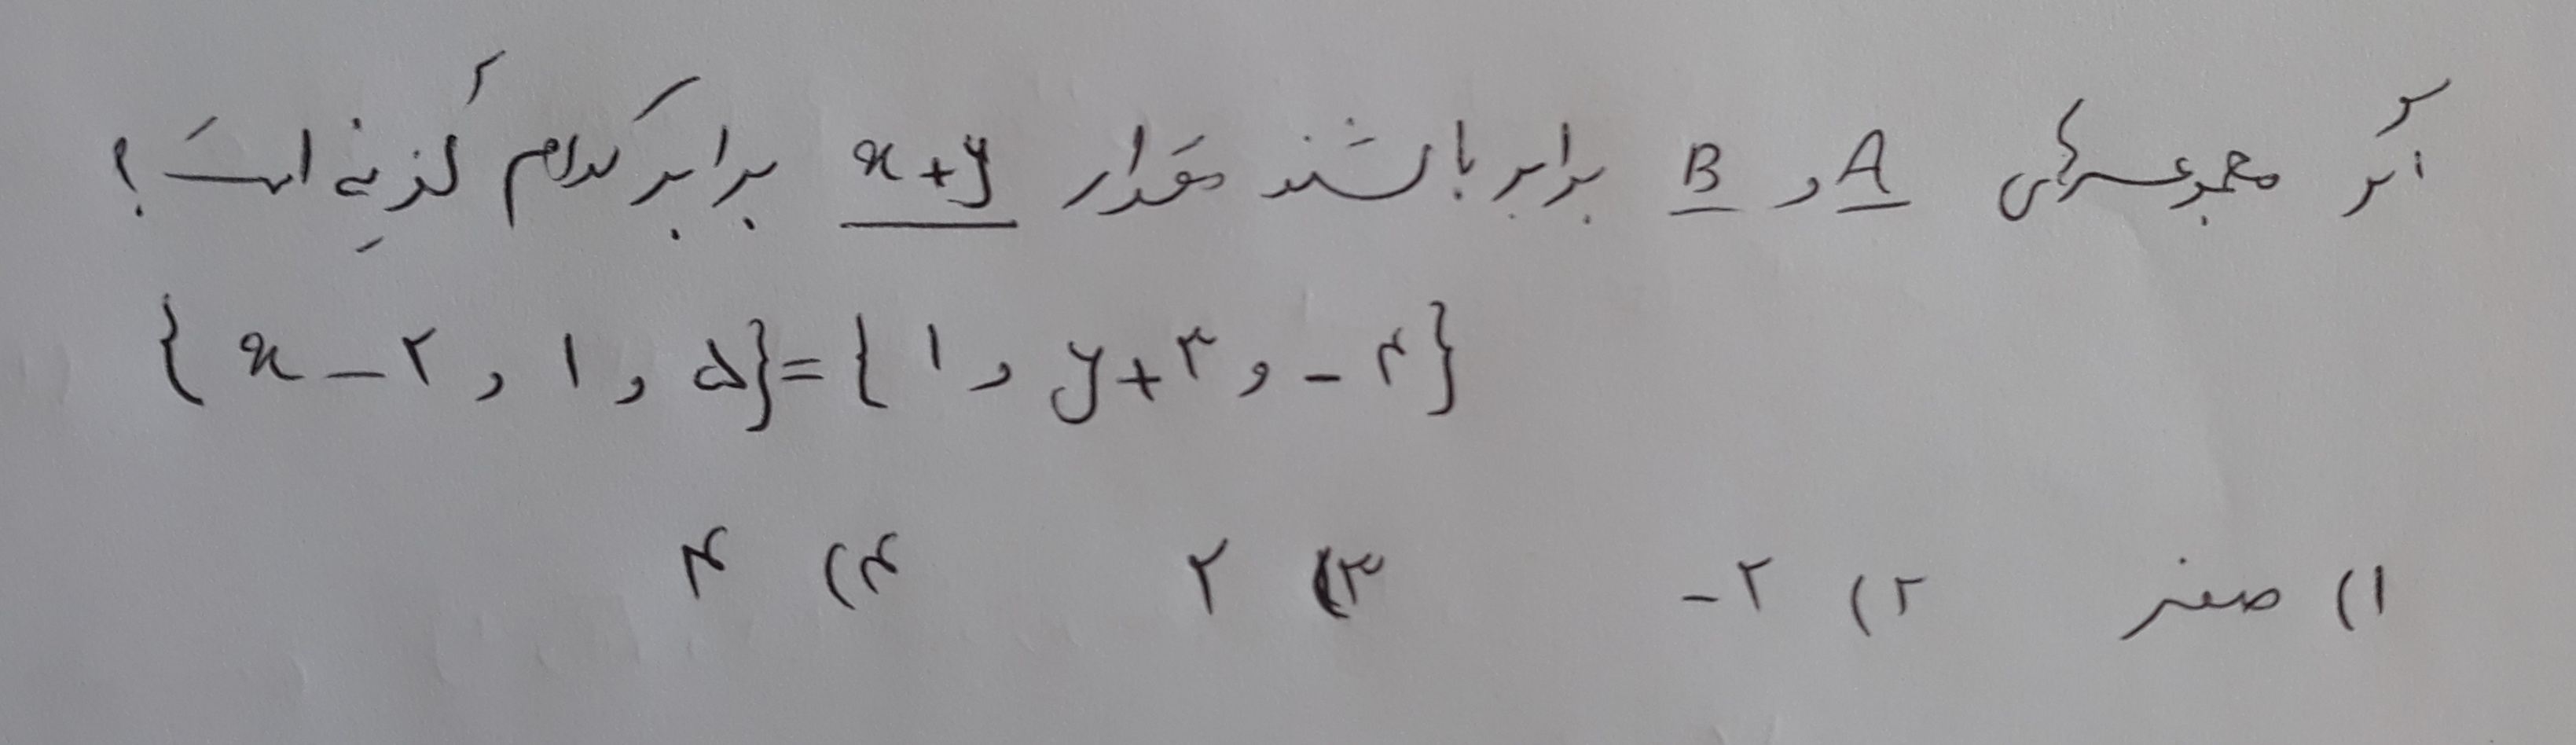 اگر مجموعه‌های A و B برابر باشند مقدار x+y برابر کدام گزینه است؟
{x-۲ , ۱ , ۵} = {۱ , y+۳ , -۴}
۱) صفر ۲) -۲ ۳) ۲ ۴) ۴